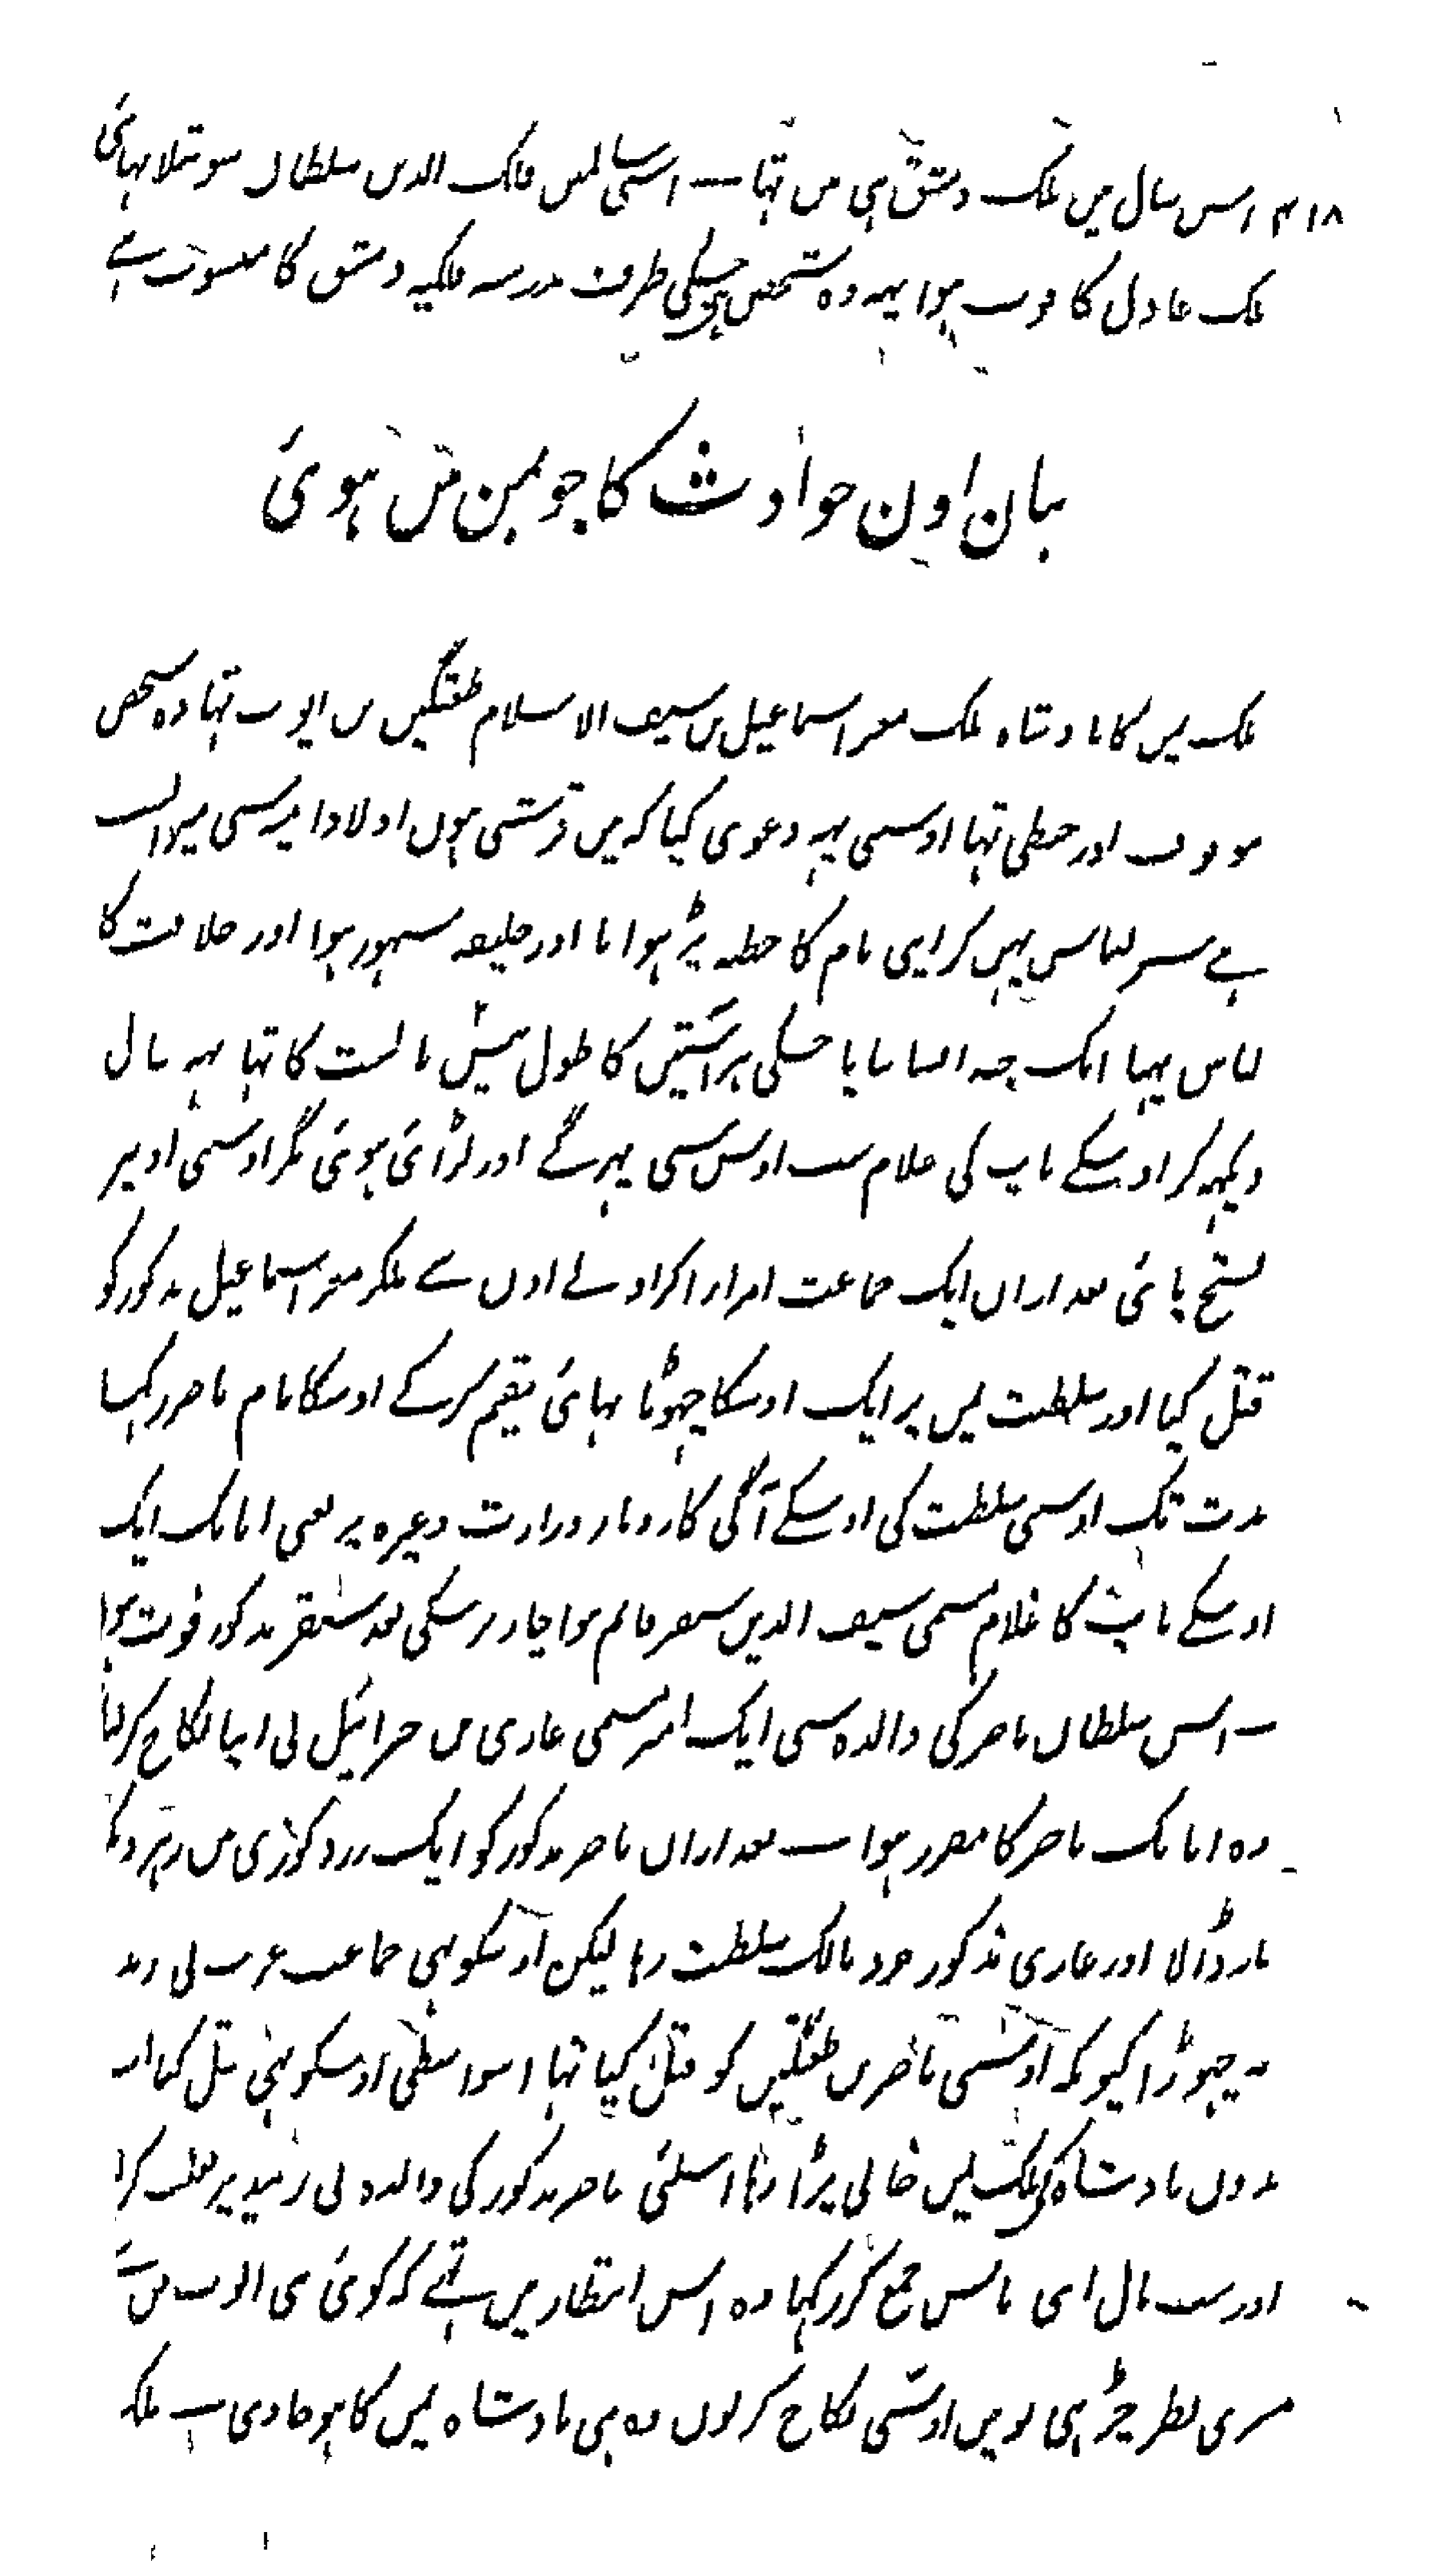 ۴۱۸ اس سال میں ملک دمشق ہی میں تہا — اسی سالمیں فلک الدین سلطان سوتیلا بہائی
ملک عادل کا فوت ہوا یہہ وہ شخص ہی جسکی طرف مدرسہ فلکیہ دمشق کا منسوب ہے
بیان اون حوادث کا جو یمن میں ہوئی
ملک یمن کا بادشاہ ملک معز اسماعیل بن سیف الاسلام طغتگین بن ایوب تہا وہ شخص
اور خبطی تہا اوسی یہہ دعوی کیا کہ میں قرشی ہوں اولاد امیہ سی میرا نسب
ہے سبز لباس پہن کر اپنی نام کا خطبہ پڑہوایا اور خلیفہ مشہور ہوا اور خلافت کا
لباس پہنا ایک جبہ ایسا بنایا جسکی ہر آستین کا طول بیس بالشت کا تہا یہہ حال
دیکہہ کر اوسکے باپ کی غلام سب اوس سی پہر گے اور لڑائی ہوئی مگر اوسی اونپر
فتح پائی بعد ازاں ایک جماعت امرار اکراد نے اون سے ملکر معز اسماعیل مذکور کو
قتل کیا اور سلطنت یمن پر ایک اوسکا چہوٹا بہائی مقیم کرکے اوسکا نام ناصر رکہا
مدت تک اوسی سلطنت کی اوسکے آگی کاروبار وزارت وغیرہ پر یعنی اتابک ایک
اوسکے باپ کا غلام مسمی سیف الدین سنقر قائم ہوا چار برسکی بعد سنقر مذکور فوت ہوا
— اس سلطان ناصر کی والدہ سی ایک امیر مسمی غازی بن جرائیل نی اپنا نکاح کرلیا
وہ اتابک ناصر کا مقرر ہوا — بعد ازاں ناصر مذکور کو ایک کوزی میں زہر دیکر
مار ڈالا اور غازی مذکور خود مالک سلطنت رہا لیکن اوسکو بہی جماعت عرب نی زندہ
نہ چہوڑا کیونکہ اوسی ناصر بن طغتگین کو قتل کیا تہا اسواسطی اوسکو بہی قتل کیا اب
بدون بادشاہ کی ملک یمن خالی پڑا رہا اسلئی ناصر مذکور کی والدہ نی زبید پر غلبہ کرلیا
اور سب مال اپنی پاس جمع کر رکہا وہ اس انتظار میں تہے کہ کوئی بنی ایوب میں سے
میری نظر چڑہی تو میں اوسی نکاح کرلوں وہ ہی بادشاہ یمن کا ہو جاوی — ملکہ